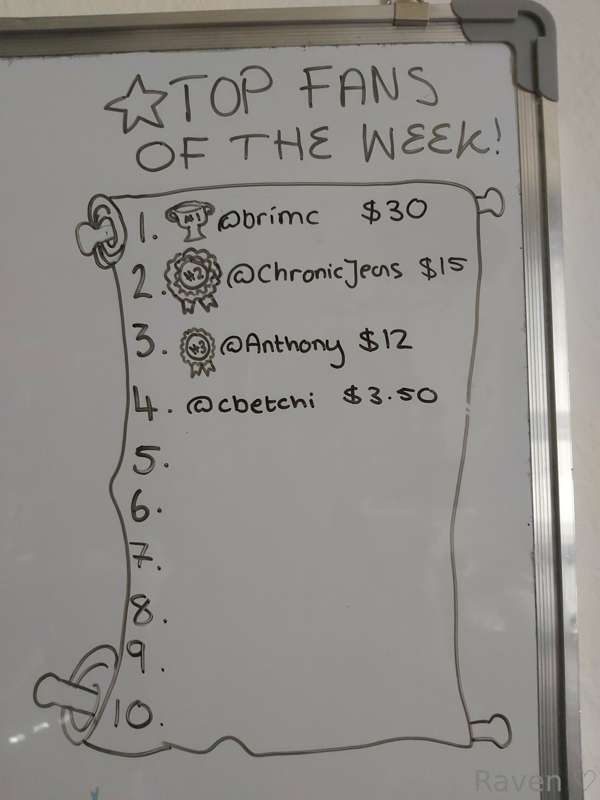 TOP FANS
OF THE WEEK!
1. #1 @brimc $30
2. #2 @ChronicJeans $15
3. #3 @Anthony $12
4. @cbetchi $3.50
5.
6.
7.
8.
9.
10.
Raven ♡